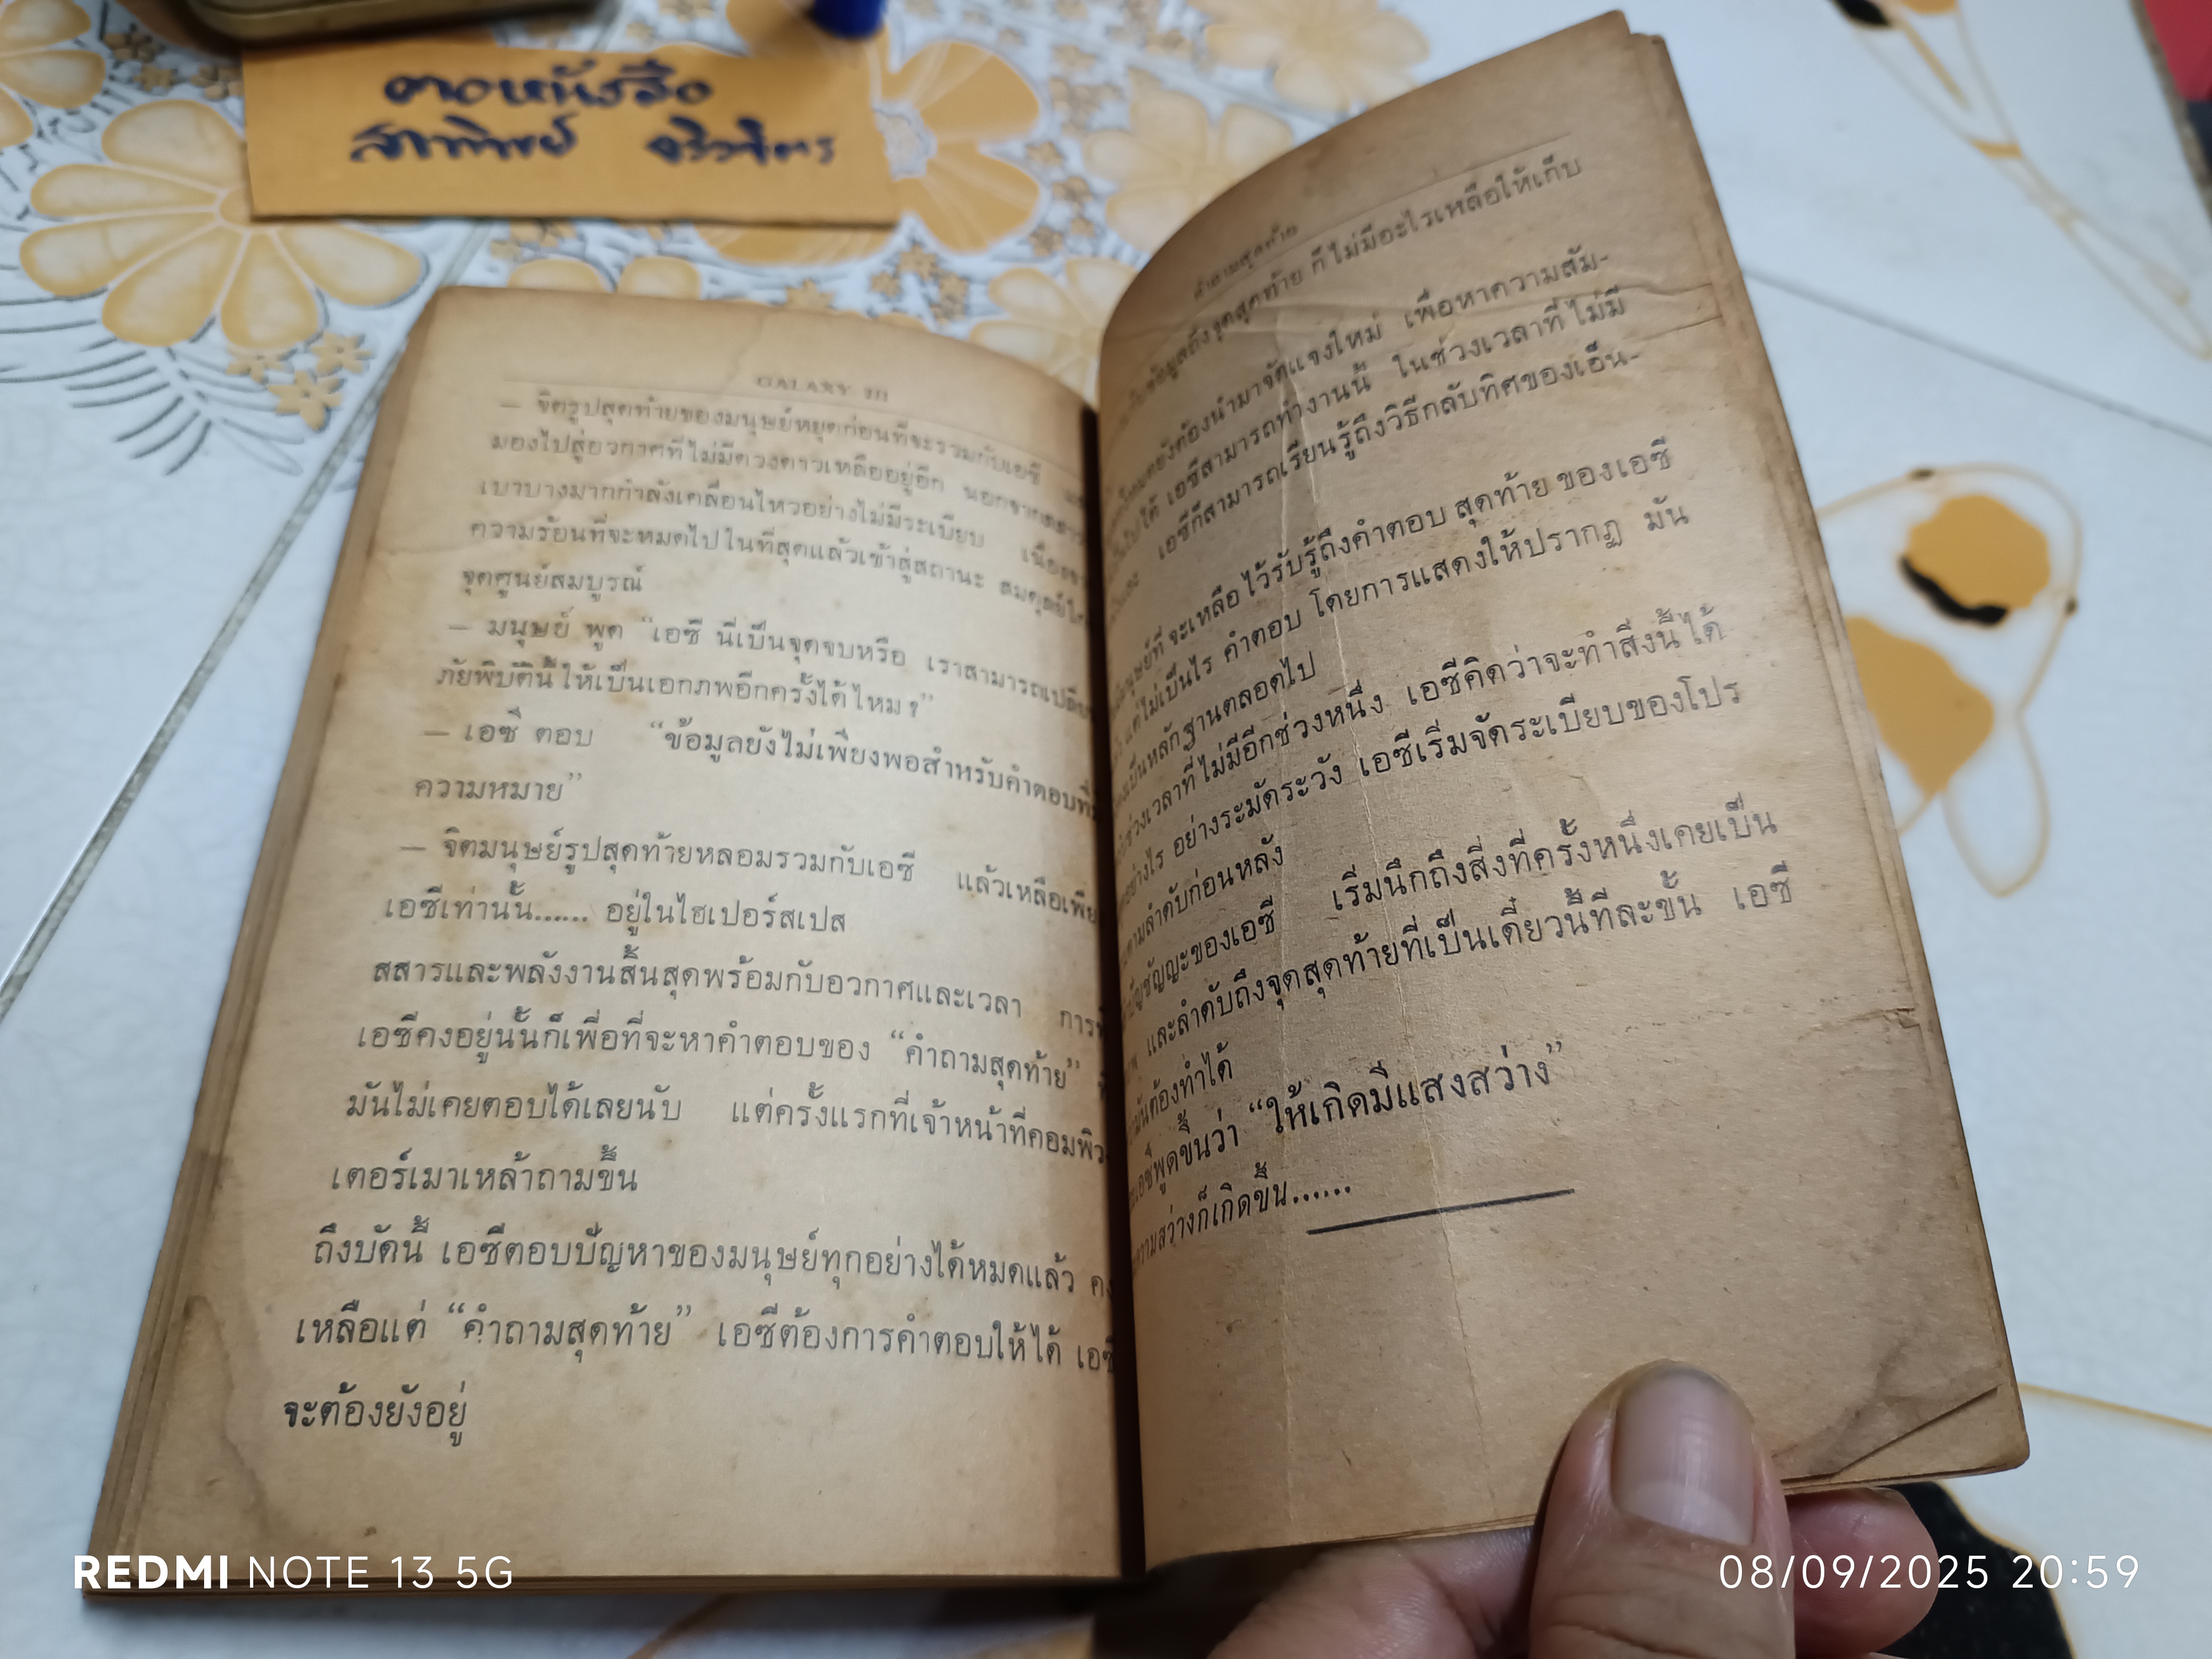 ตอหนังสือ
สาทิพย์
GALAXY
— จิตรูปสุดท้ายของมนุษย์หยุดก่อนที่จะรวมกับเอซี
มองไปสู่อวกาศที่ไม่มีดวงดาวเหลืออยู่อีก นอกจาก
เบาบางมากกำลังเคลื่อนไหวอย่างไม่มีระเบียบ
ความร้อนที่จะหมดไปในที่สุดแล้วเข้าสู่สถานะ สมดุลย์
จุดศูนย์สมบูรณ์
— มนุษย์ พูด “เอซี นี่เป็นจุดจบหรือ เราสามารถ
ภัยพิบัตินี้ให้เป็นเอกภพอีกครั้งได้ไหม ?”
— เอซี ตอบ “ข้อมูลยังไม่เพียงพอสำหรับคำตอบ
ความหมาย”
— จิตมนุษย์รูปสุดท้ายหลอมรวมกับเอซี แล้วเหลือ
เอซีเท่านั้น...... อยู่ในไฮเปอร์สเปส
สสารและพลังงานสิ้นสุดพร้อมกับอวกาศและเวลา
เอซีคงอยู่นั้นก็เพื่อที่จะหาคำตอบของ “คำถามสุดท้าย”
มันไม่เคยตอบได้เลยนับ แต่ครั้งแรกที่เจ้าหน้าที่คอมพิว
เตอร์เมาเหล้าถามขึ้น
ถึงบัดนี้ เอซีตอบปัญหาของมนุษย์ทุกอย่างได้หมดแล้ว
เหลือแต่ “คำถามสุดท้าย” เอซีต้องการคำตอบให้ได้
จะต้องยังอยู่
คำถามสุดท้าย
ข้อมูลถึงจุดสุดท้าย ก็ไม่มีอะไรเหลือให้เก็บ
ยังต้องนำมาจัดแจงใหม่ เพื่อหาความสัม-
เอซีสามารถทำงานนี้ ในช่วงเวลาที่ไม่มี
เอซีก็สามารถเรียนรู้ถึงวิธีกลับทิศของเอ็น-
ที่จะเหลือไว้รับรู้ถึงคำตอบ สุดท้าย ของเอซี
แต่ไม่เป็นไร คำตอบ โดยการแสดงให้ปรากฏ มัน
หลักฐานตลอดไป
เวลาที่ไม่มีอีกช่วงหนึ่ง เอซีคิดว่าจะทำสิ่งนี้ได้
อย่างไร อย่างระมัดระวัง เอซีเริ่มจัดระเบียบของโปร
ตามลำดับก่อนหลัง
ของเอซี เริ่มนึกถึงสิ่งที่ครั้งหนึ่งเคยเป็น
และลำดับถึงจุดสุดท้ายที่เป็นเดี๋ยวนี้ทีละขั้น เอซี
มันต้องทำได้
เอซีพูดขึ้นว่า “ให้เกิดมีแสงสว่าง”
ความสว่างก็เกิดขึ้น......
REDMI NOTE 13 5G
08/09/2025 20:59